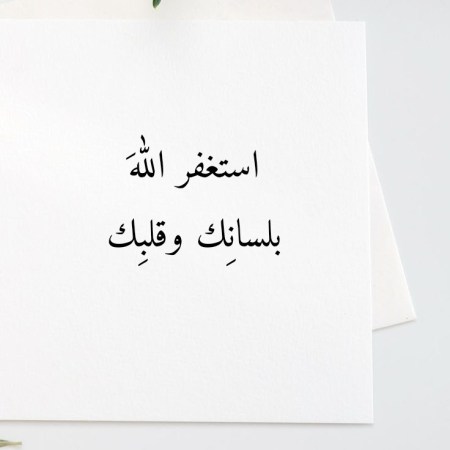 استغفر اللهَ
بلسانِك وقلبِك